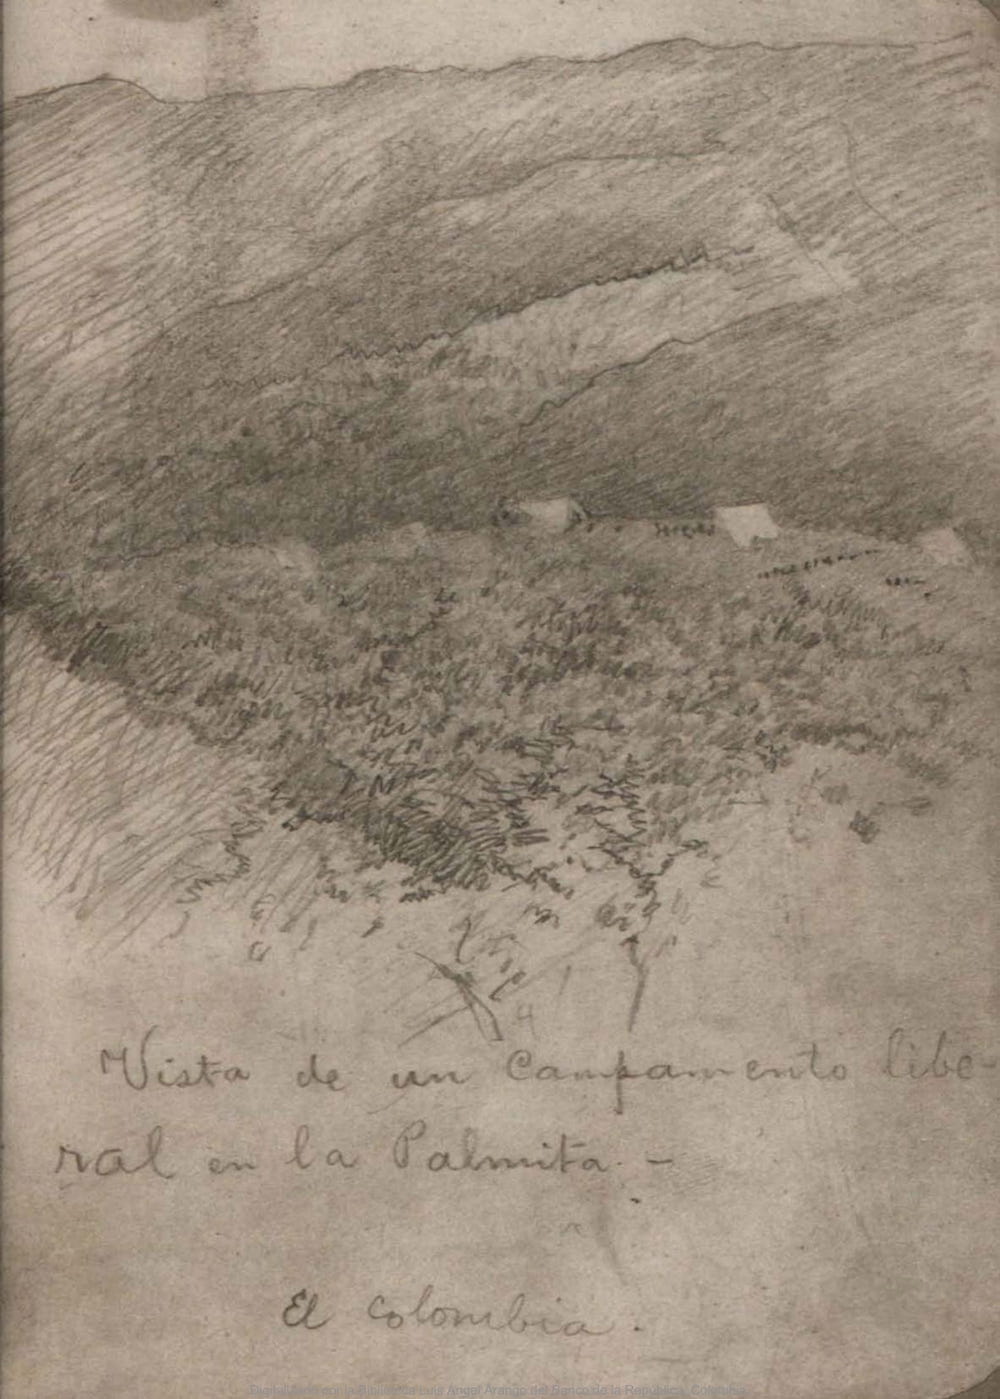 Vista de un Campamento libe-
ral en la Palmita. -
El Colombia.
Digitalizado por la Biblioteca Luis Angel Arango del Banco de la República, Colombia